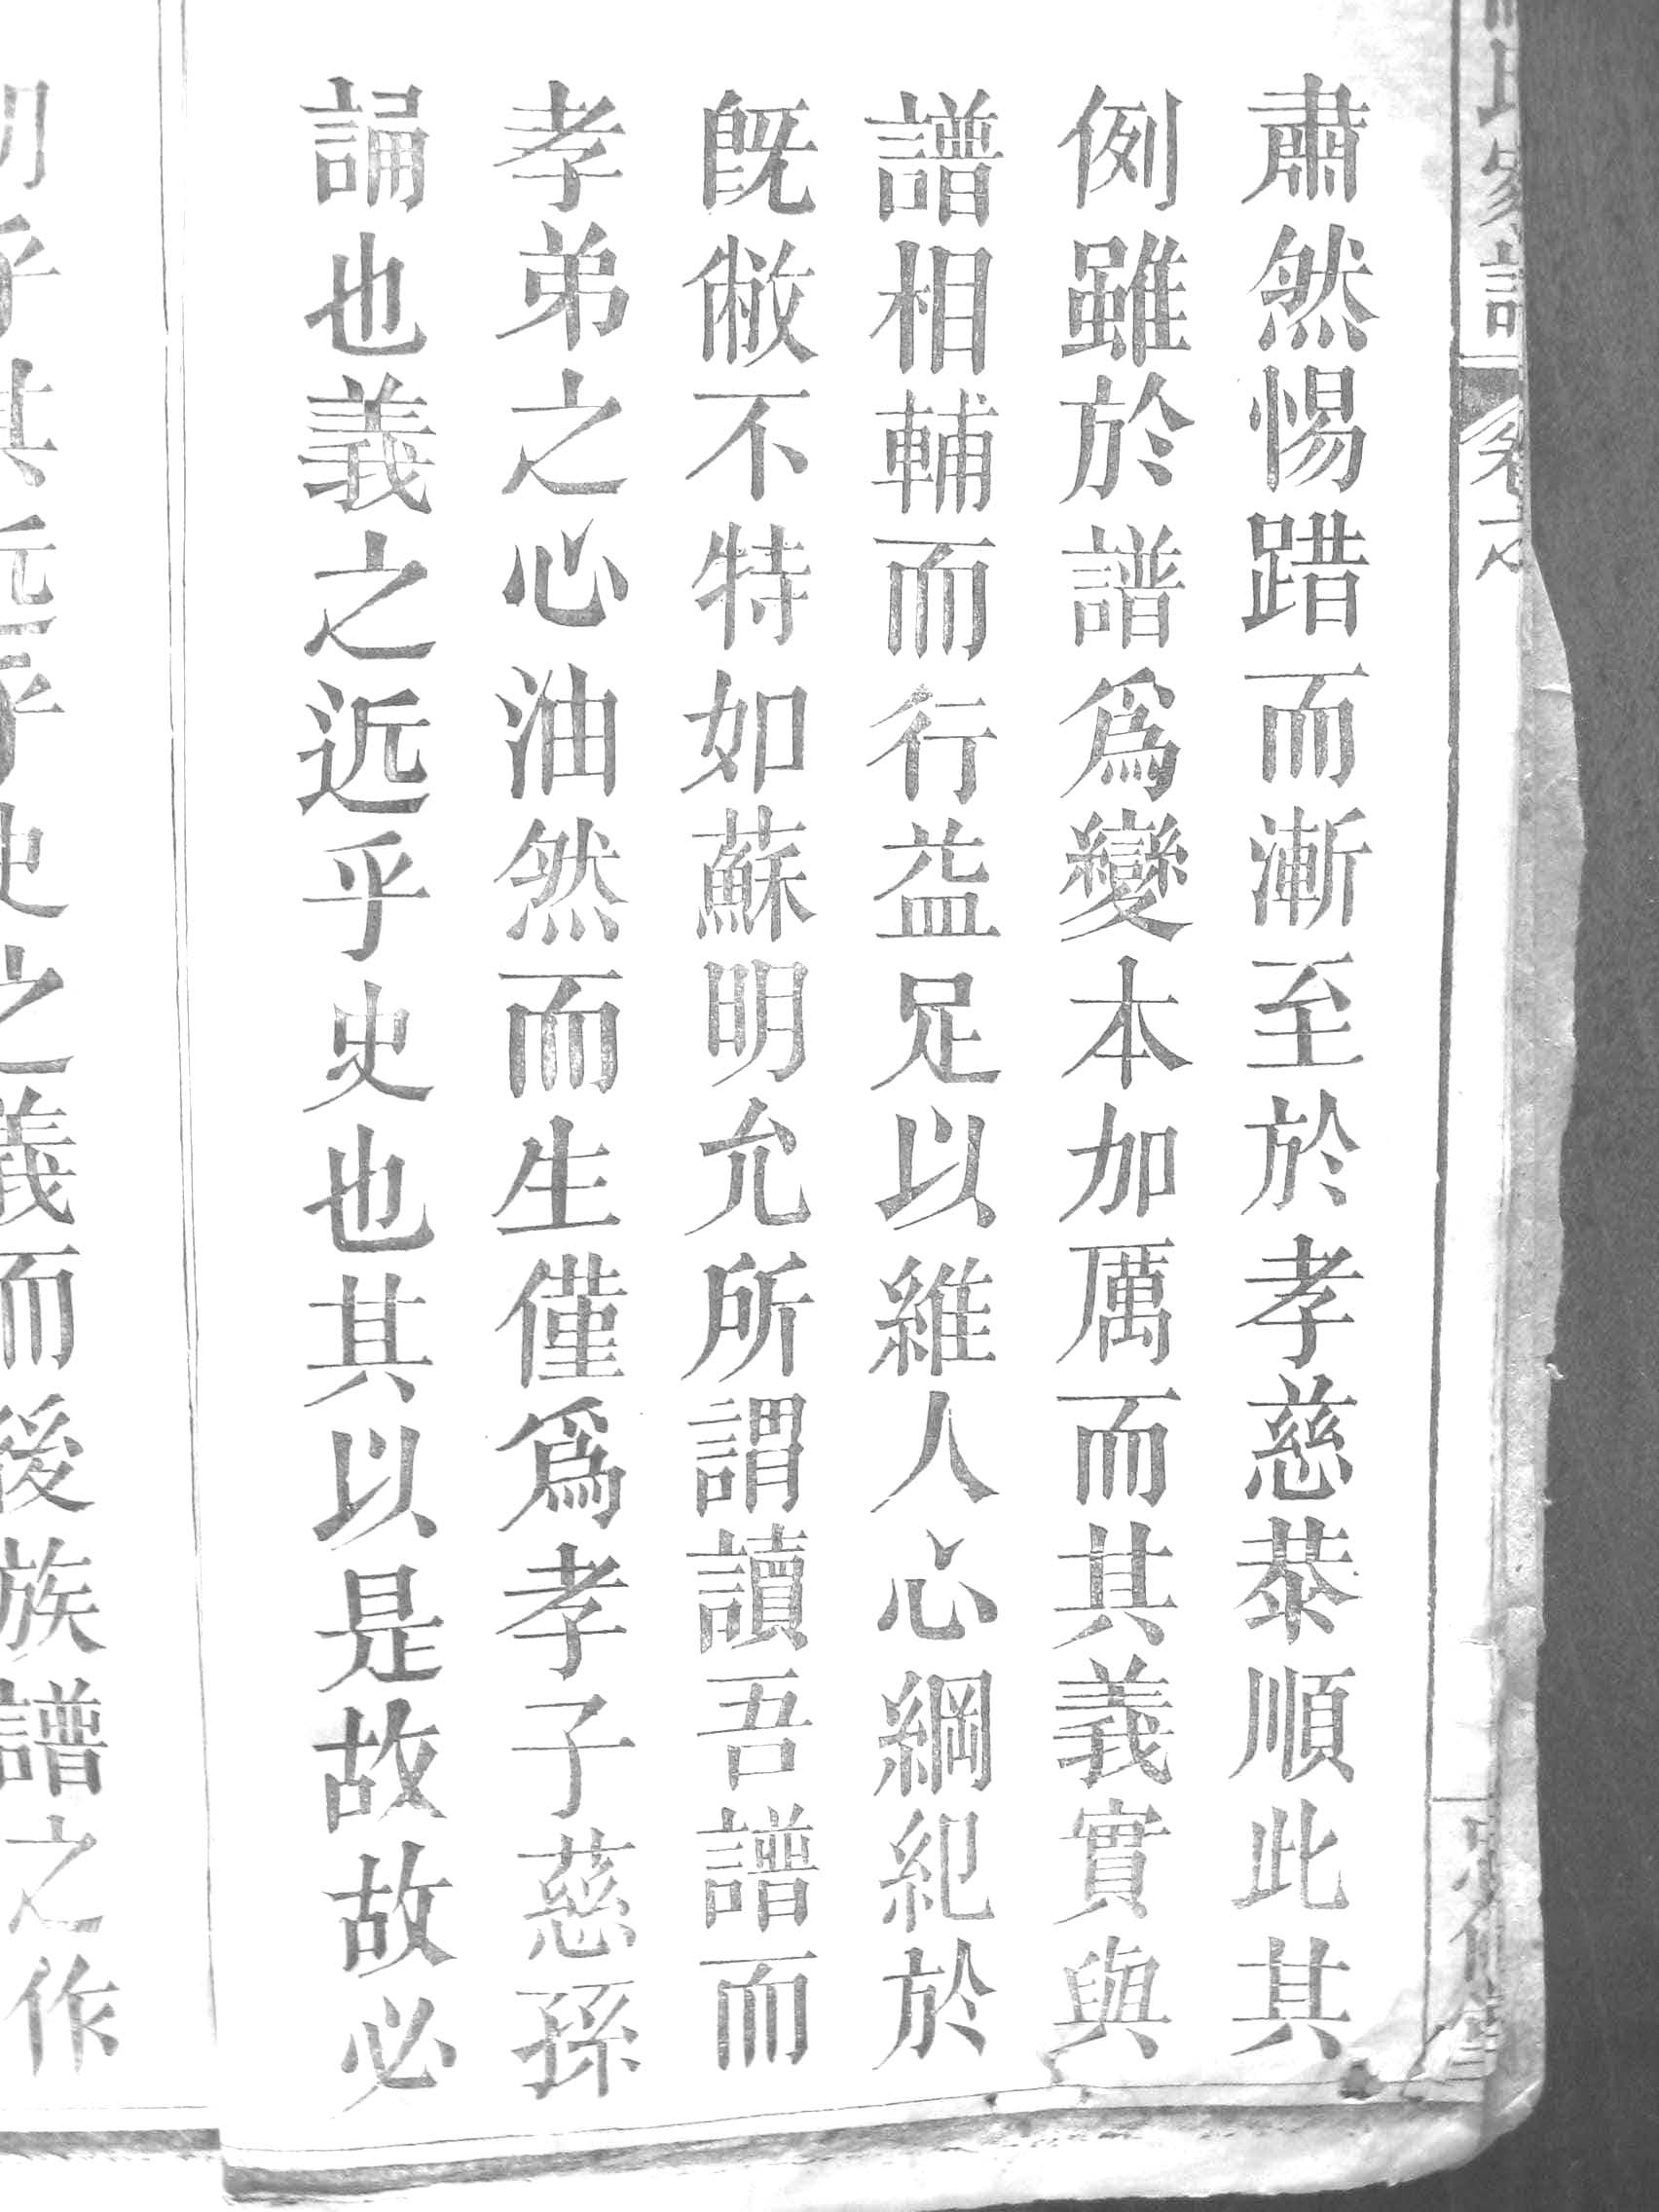 氏家譜
卷之
肅然惕踖而漸至於孝慈恭順此其
例雖於譜爲變本加厲而其義實與
譜相輔而行益足以維人心綱紀於
旣敝不特如蘇明允所謂讀吾譜而
孝弟之心油然而生僅爲孝子慈孫
誦也義之近乎史也其以是故故必
乎其近乎史之義而後族譜之作